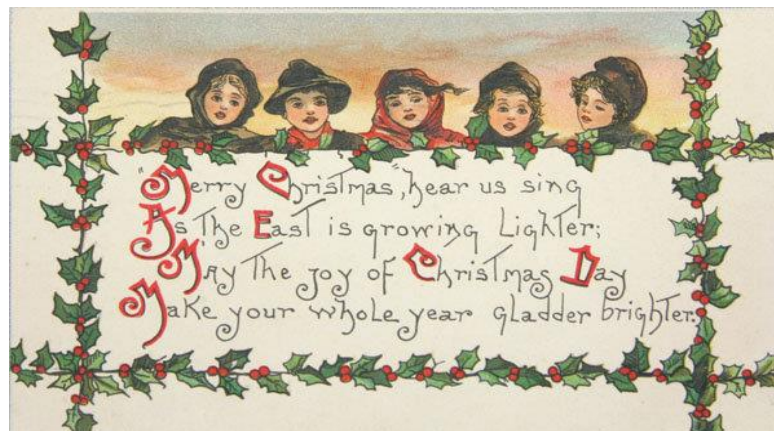 "Merry Christmas", hear us sing
As the East is growing Lighter;
May the joy of Christmas Day
Make your whole year gladder brighter.